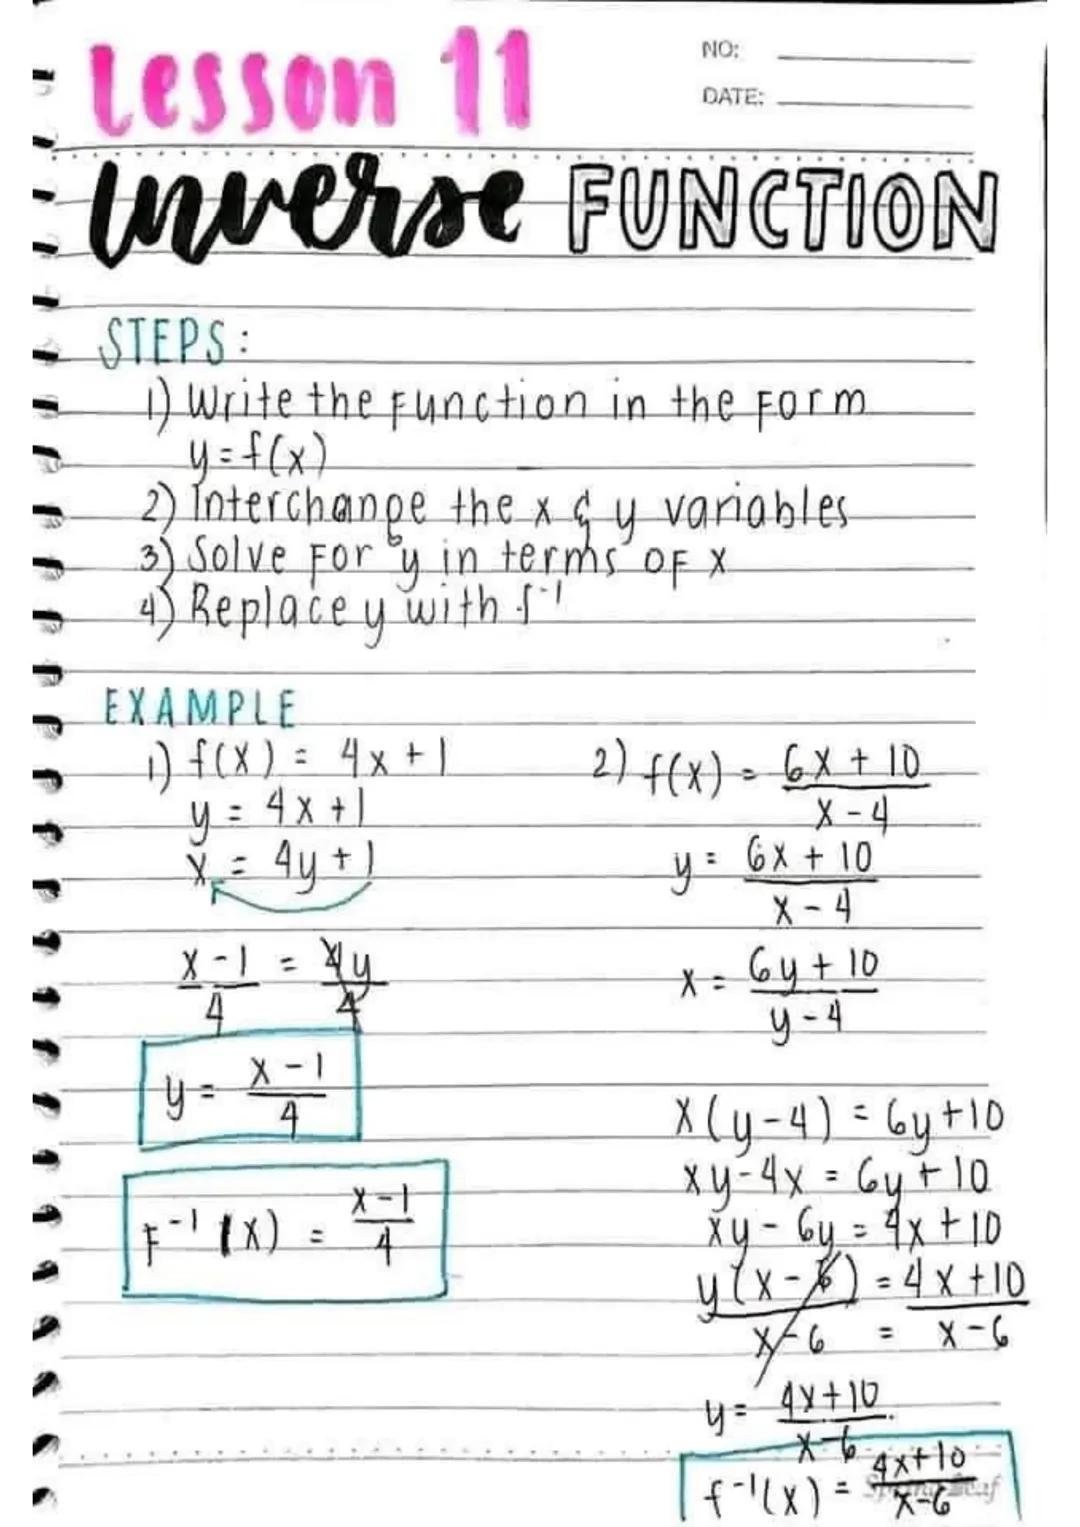 Lesson 11
NO:
DATE:
Inverse FUNCTION
STEPS:
1) Write the function in the form
y = f(x)
2) Interchange the x & y variables
3) Solve for y in terms of x
4) Replace y with f⁻¹
EXAMPLE
1) f(x) = 4x + 1
y = 4x + 1
x = 4y + 1
x - 1 = 4y
4 4
y = x - 1
4
F⁻¹(x) = x - 1
4
2) f(x) = 6x + 10
x - 4
y = 6x + 10
x - 4
x = 6y + 10
y - 4
x(y - 4) = 6y + 10
xy - 4x = 6y + 10
xy - 6y = 4x + 10
y(x - 6) = 4x + 10
x - 6 = x - 6
y = 4x + 10
x - 6
f⁻¹(x) = 4x + 10
x - 6